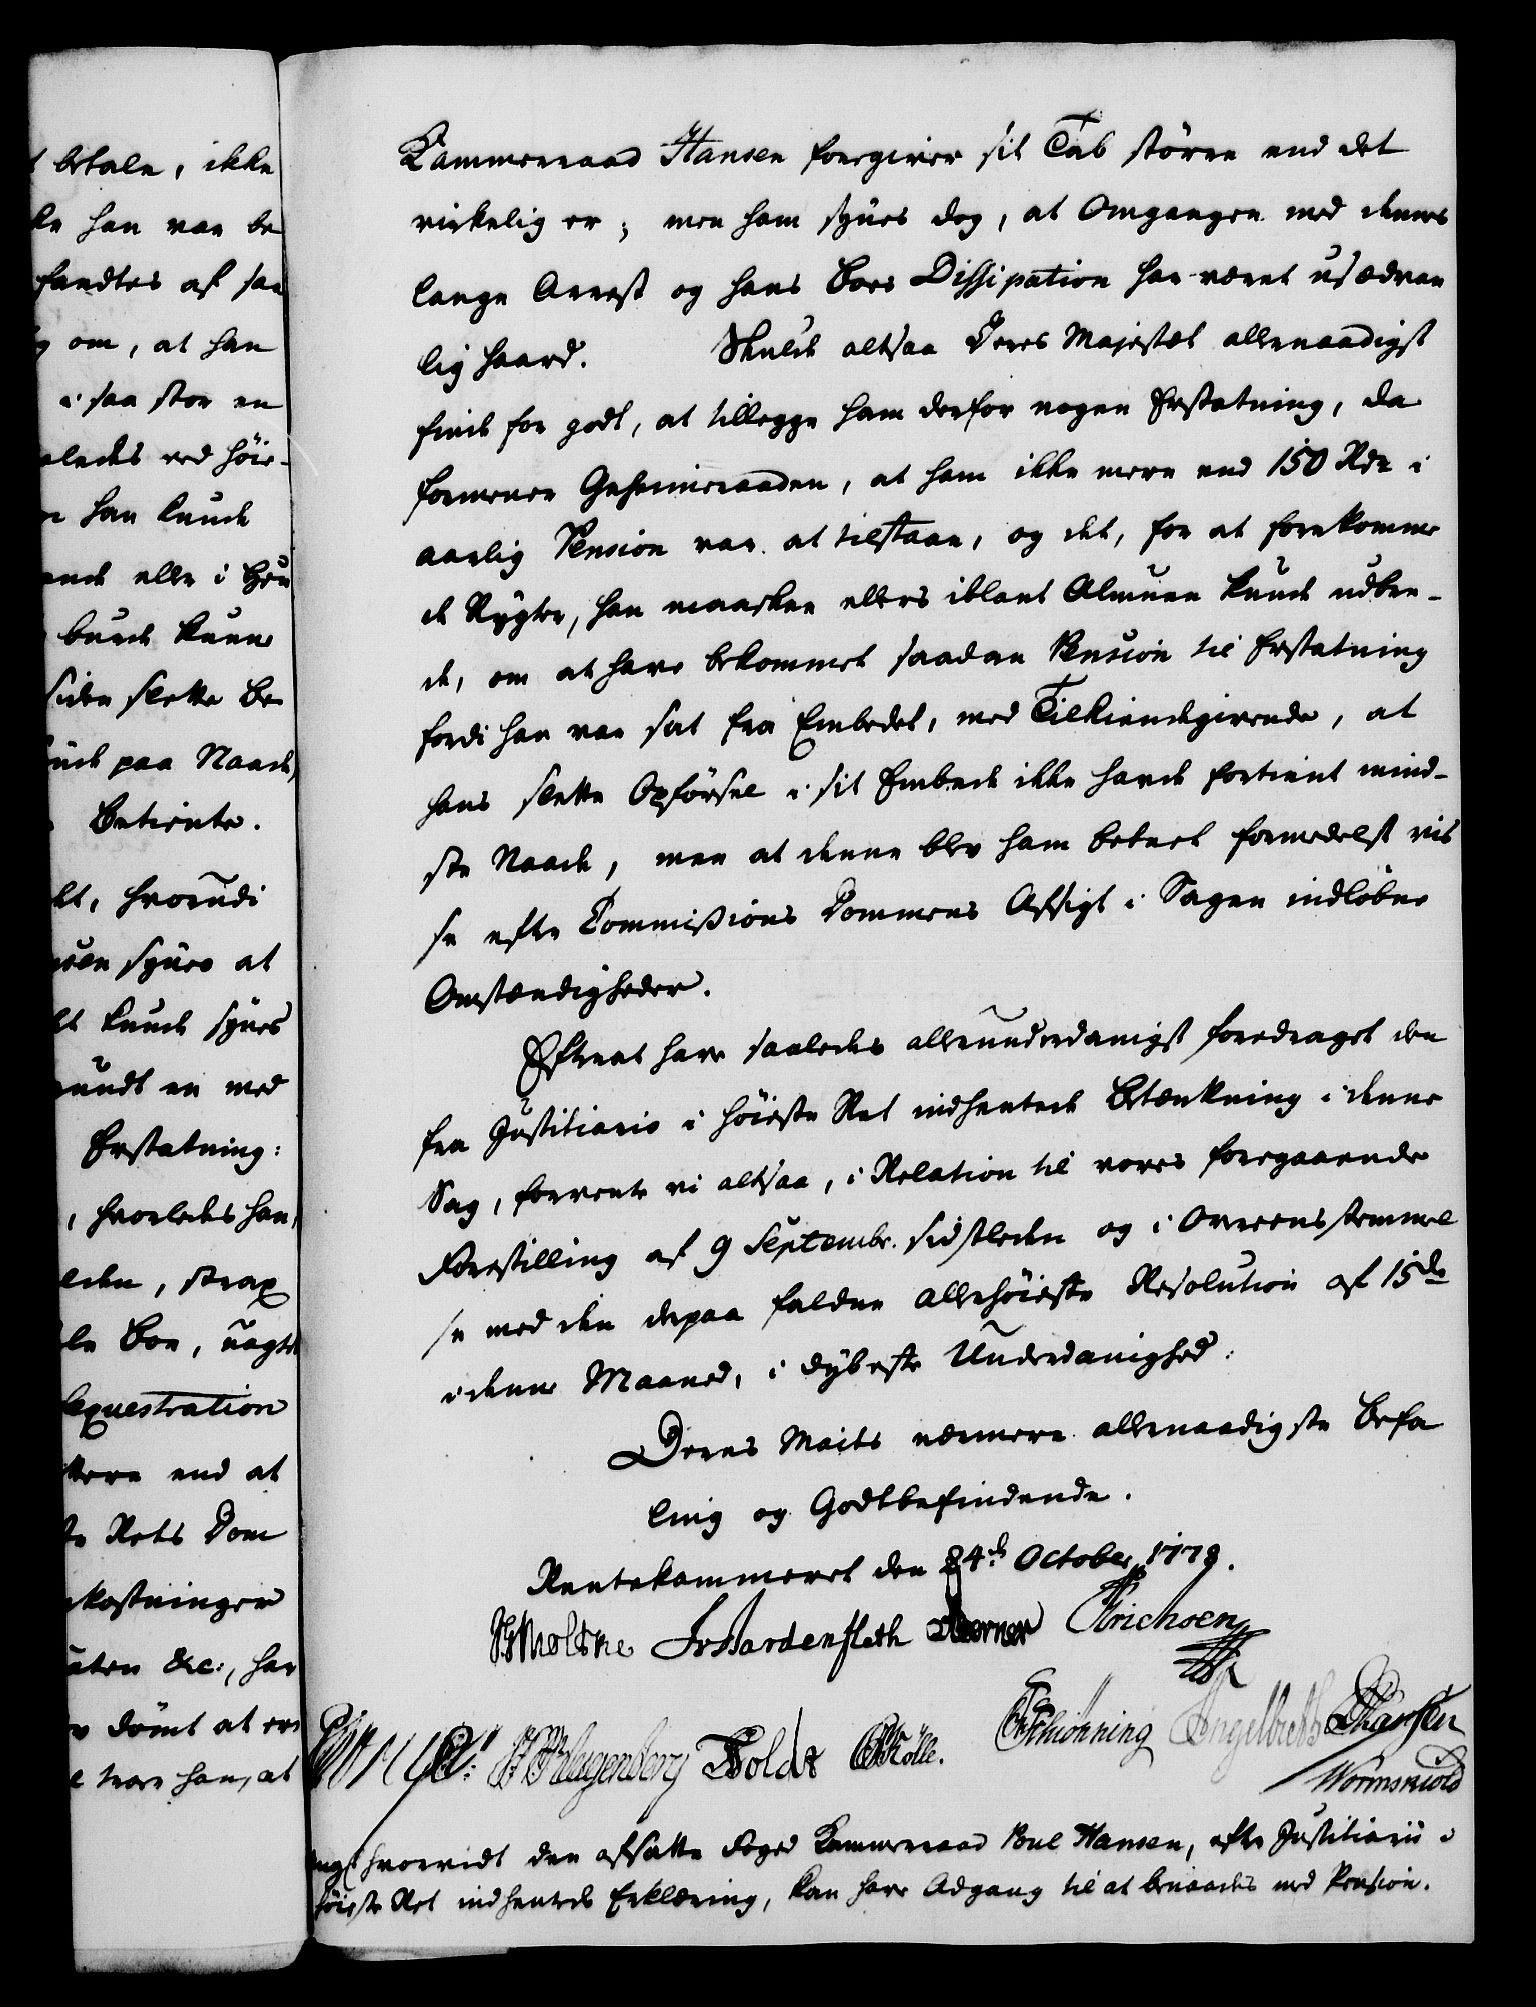 t betale, ikke
ke han var be
fandtes af saa
g om, at han
i saa stor en
aledes ved höie-
han kunde
ende eller i
burde kunne
siden slette Be
paa Naade,
Betiente.
et, hvorudi
synes at
et kunde synes
undt en med
Erstatning:
, hvorledes han,
eden, strax
le Boe, uagtet
Sequestration
ere end at
te Rets Dom
kostninger
&c:, har
dömt at er
han, at
Kammerraad Hansen foregiver sit Tab större end det
virkelig er; men ham synes dog, at Omgangen med dennes
lange Arrest og hans Boes Dissipation har været usædvan
lig haard. Skulde altsaa Deres Majestæt allernaadigst
finde for godt, at tillegge ham derfor nogen Erstatning, da
formener Geheimeraaden, at ham ikke mere end 150 Rdr i
aarlig Pension var at tilstaae, og det, for at forekomme
de Rygter, han maaskee ellers iblant Almuen kunde udbre-
de, om at have bekommet saadan Pension til Erstatning
fordi han var sat fra Embedet, med Tilkiendegivende, at
hans slette Opförsel i sit Embede ikke havde fortient mind-
ste Naade, men at denne blev ham beteet formedelst vis
se efter Commissions Dommens Afsigt i Sagen indlöbne
Omstændigheder.
Efterat have saaledes allerunderdanigst foredraget den
fra Justitiario i höieste Ret indhentede Betænkning i denne
Sag, forvente vi altsaa, i Relation til vores foregaaende
Forestilling af 9 Septembr. sidstleden og i Overeensstemmel
se med den derpaa faldne allerhöieste Resolution af 15de
i denne Maaned, i dybeste Underdanighed:
Deres Maits nærmere allernaadigste Befa
ling og Godtbefindende.
Rentekammeret den 24de October 1778.
HMoltke JvHardenfleth Berner Erichsen
Klagenberg Holdt Rölle. Schiönning Engelbreth Hansen
Wormskiold
hvorvidt den afsatte Foged Kammerraad Poul Hansen, efter Justitiarii i
höieste Ret indhentede Erklæring, kan have Adgang til at benaades med Pension.